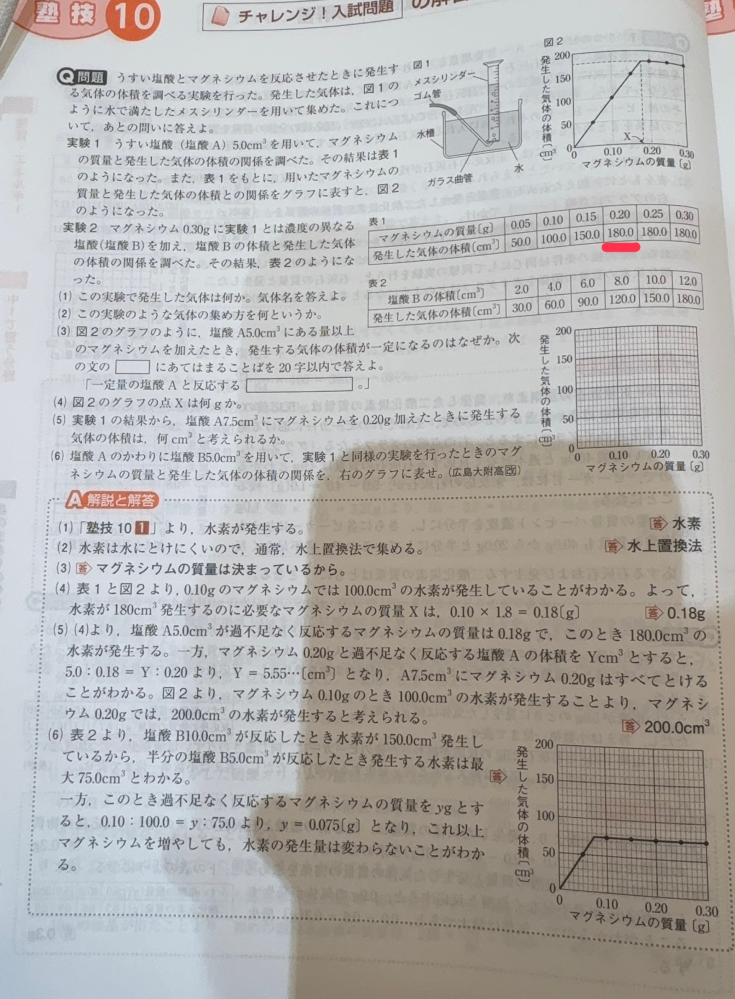 塾技 10
チャレンジ！入試問題
Q 問題 うすい塩酸とマグネシウムを反応させたときに発生す
る気体の体積を調べる実験を行った。発生した気体は，図1の
ように水で満たしたメスシリンダーを用いて集めた。これにつ
いて，あとの問いに答えよ。
実験1 うすい塩酸（塩酸A）5.0cm³を用いて，マグネシウム
の質量と発生した気体の体積の関係を調べた。その結果は表1
のようになった。また，表1をもとに，用いたマグネシウムの
質量と発生した気体の体積との関係をグラフに表すと，図2
のようになった。
実験2 マグネシウム0.30gに実験1とは濃度の異なる
塩酸（塩酸B）を加え，塩酸Bの体積と発生した気体
の体積の関係を調べた。その結果，表2のようにな
った。
(1) この実験で発生した気体は何か。気体名を答えよ。
(2) この実験のような気体の集め方を何というか。
(3) 図2のグラフのように，塩酸A5.0cm³にある量以上
のマグネシウムを加えたとき，発生する気体の体積が一定になるのはなぜか。次
の文の にあてはまることばを20字以内で答えよ。
「一定量の塩酸Aと反応する 。」
(4) 図2のグラフの点Xは何gか。
(5) 実験1の結果から，塩酸A7.5cm³にマグネシウムを0.20g加えたときに発生する
気体の体積は，何cm³と考えられるか。
(6) 塩酸Aのかわりに塩酸B5.0cm³を用いて，実験1と同様の実験を行ったときのマグ
ネシウムの質量と発生した気体の体積の関係を，右のグラフに表せ。（広島大附高改）
図1
メスシリンダー
ゴム管
水槽
ガラス曲管
水
図2
発生した気体の体積〔cm³〕
200
150
100
50
0
X
0 0.10 0.20 0.30
マグネシウムの質量〔g〕
表1
マグネシウムの質量〔g〕 0.05 0.10 0.15 0.20 0.25 0.30
発生した気体の体積〔cm³〕 50.0 100.0 150.0 180.0 180.0 180.0
表2
塩酸Bの体積〔cm³〕 2.0 4.0 6.0 8.0 10.0 12.0
発生した気体の体積〔cm³〕 30.0 60.0 90.0 120.0 150.0 180.0
発生した気体の体積〔cm³〕
200
150
100
50
0
0 0.10 0.20 0.30
マグネシウムの質量〔g〕
A 解説と解答
(1) 「塾技10 1」より，水素が発生する。 答 水素
(2) 水素は水にとけにくいので，通常，水上置換法で集める。 答 水上置換法
(3) 答 マグネシウムの質量は決まっているから。
(4) 表1と図2より，0.10gのマグネシウムでは100.0cm³の水素が発生していることがわかる。よって，
水素が180cm³発生するのに必要なマグネシウムの質量Xは，0.10 × 1.8 = 0.18〔g〕 答 0.18g
(5) (4)より，塩酸A5.0cm³が過不足なく反応するマグネシウムの質量は0.18gで，このとき180.0cm³の
水素が発生する。一方，マグネシウム0.20gと過不足なく反応する塩酸Aの体積をYcm³とすると，
5.0：0.18 = Y：0.20より，Y = 5.55…〔cm³〕となり，A7.5cm³にマグネシウム0.20gはすべてとける
ことがわかる。図2より，マグネシウム0.10gのとき100.0cm³の水素が発生することより，マグネシ
ウム0.20gでは，200.0cm³の水素が発生すると考えられる。 答 200.0cm³
(6) 表2より，塩酸B10.0cm³が反応したとき水素が150.0cm³発生し
ているから，半分の塩酸B5.0cm³が反応したとき発生する水素は最
大75.0cm³とわかる。
一方，このとき過不足なく反応するマグネシウムの質量をygとす
ると，0.10：100.0 = y：75.0より，y = 0.075〔g〕となり，これ以上
マグネシウムを増やしても，水素の発生量は変わらないことがわか
る。
答
発生した気体の体積〔cm³〕
200
150
100
50
0
0 0.10 0.20 0.30
マグネシウムの質量〔g〕